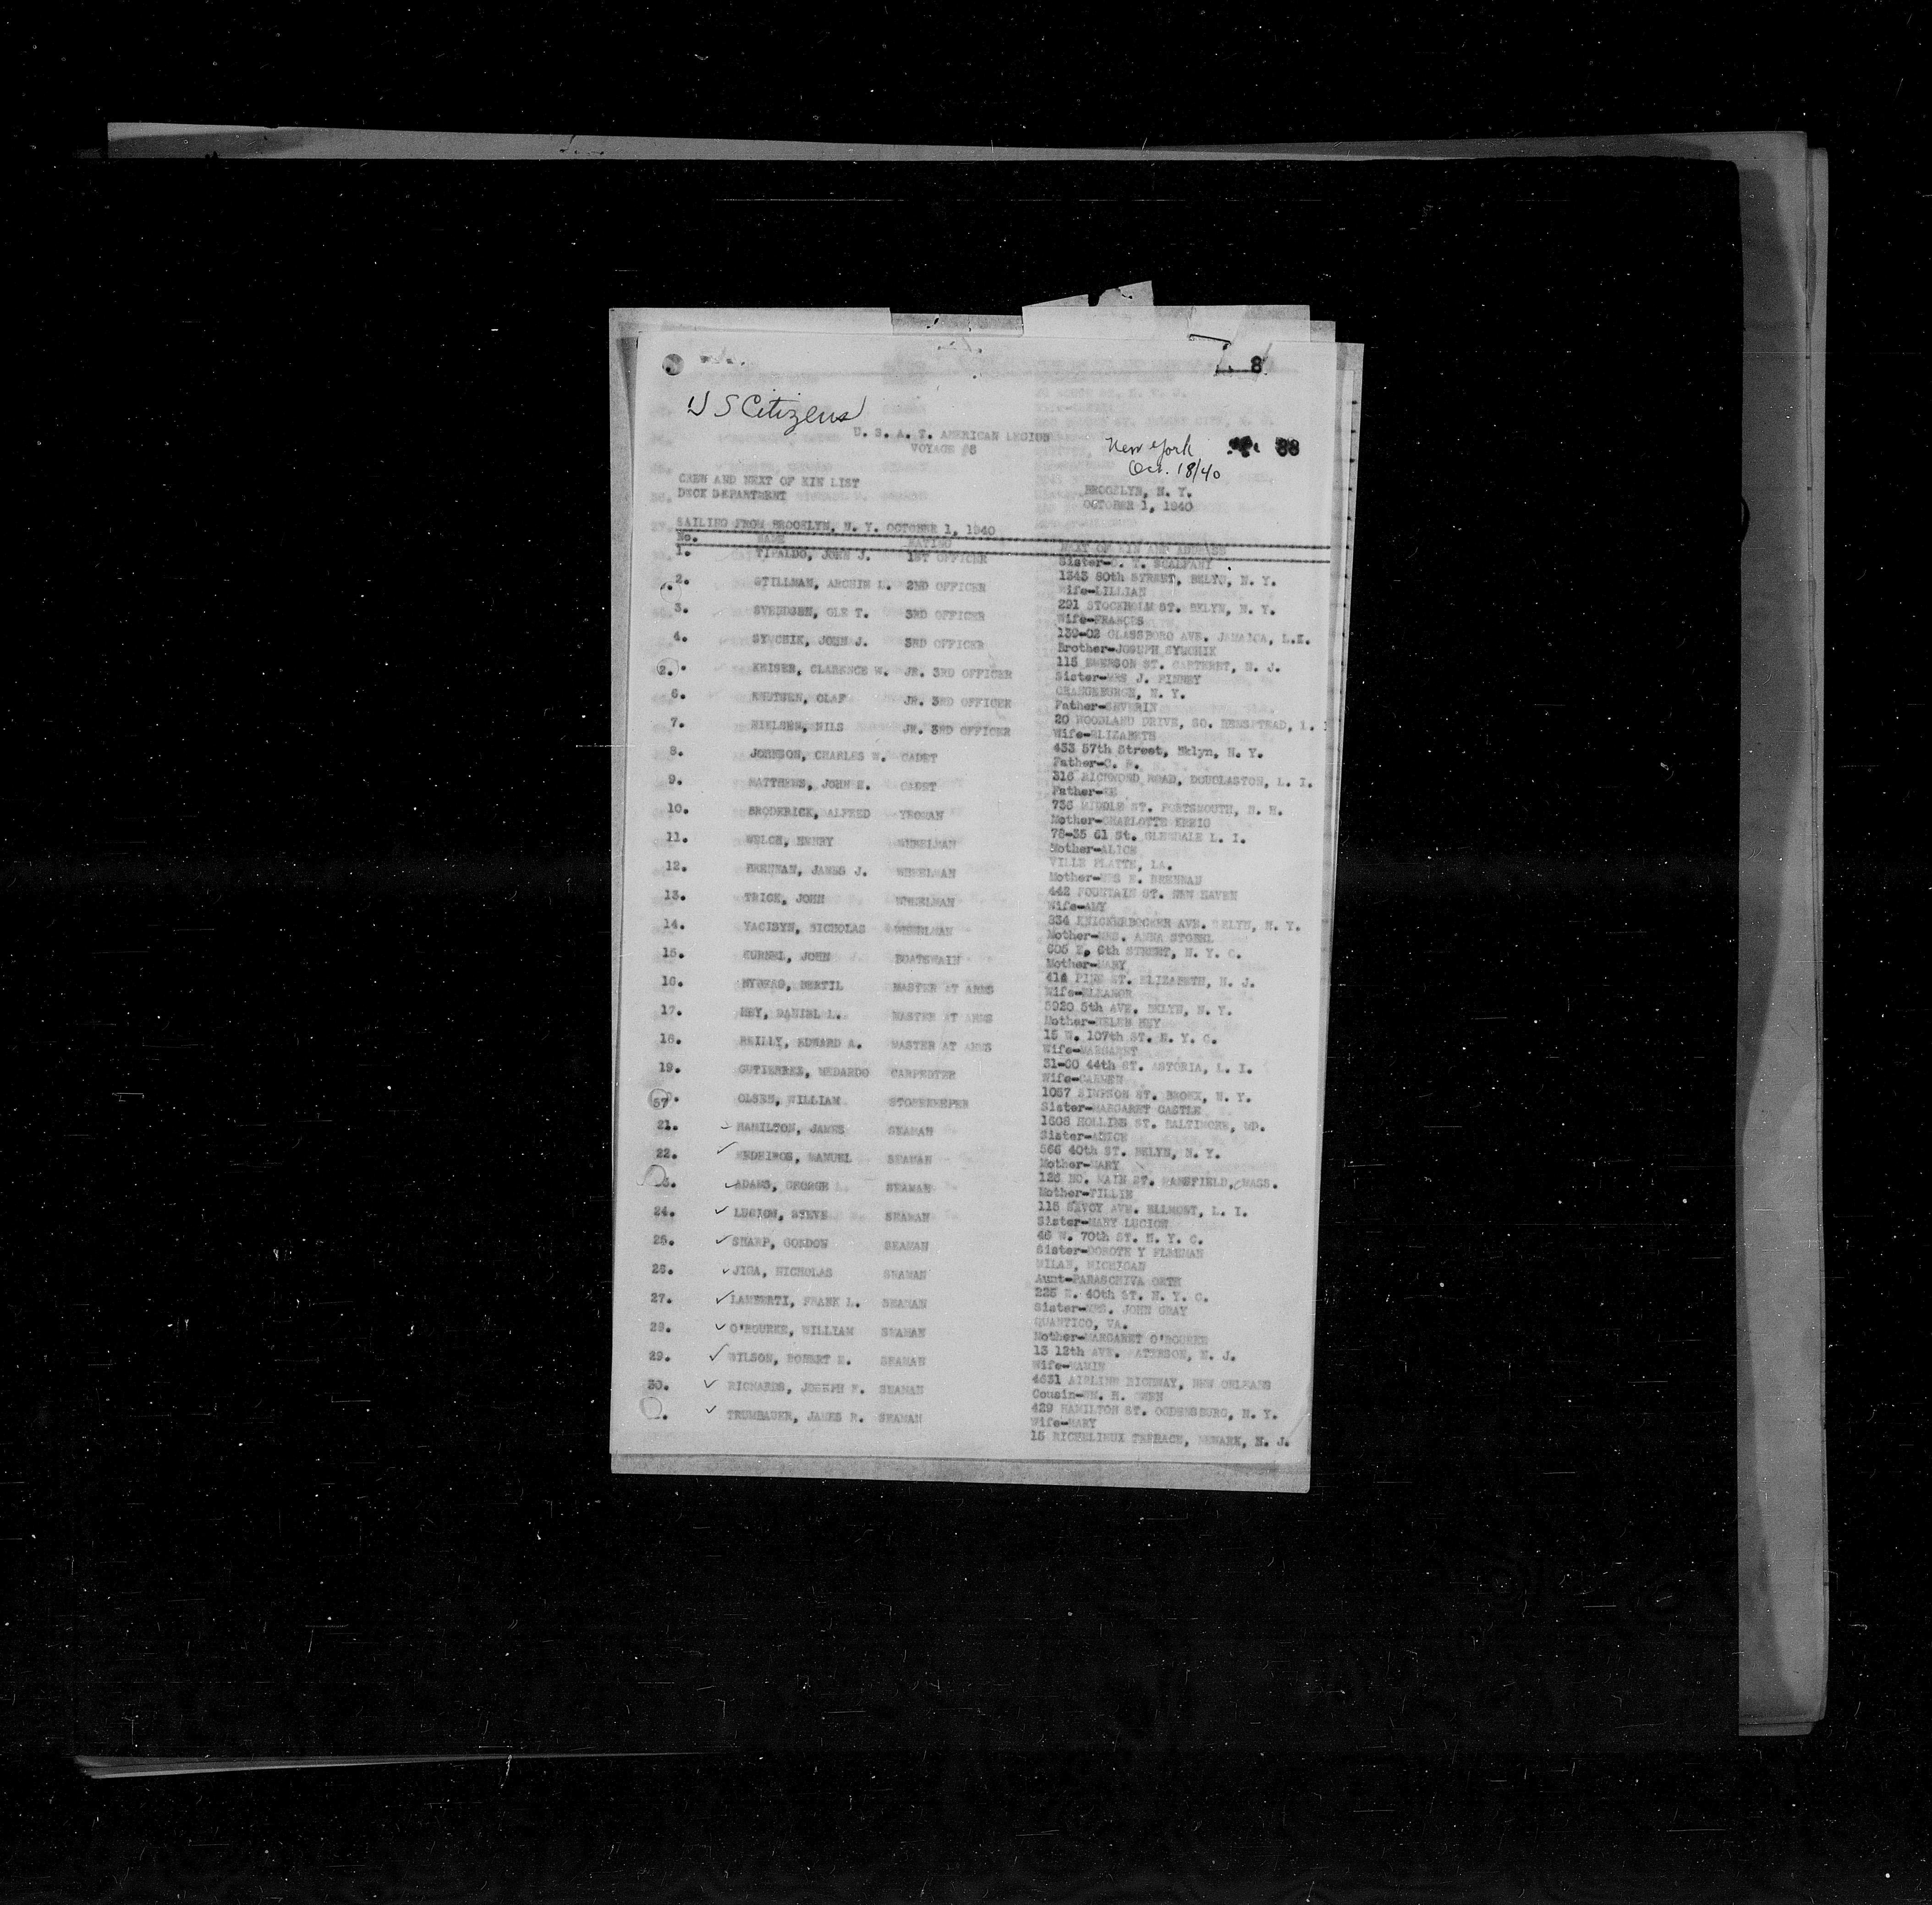 8
U S Citizens
U. S. A. T. AMERICAN LEGION
VOYAGE #8
New York
Oct. 18/40
88
CREW AND NEXT OF KIN LIST
DECK DEPARTMENT
BROOKLYN, N. Y.
OCTOBER 1, 1940
SAILING FROM BROOKLYN, N. Y. OCTOBER 1, 1940
No. NAME RATING NEXT OF KIN AND ADDRESS
1. TIPALDO, JOHN J. 1ST OFFICER Sister-
1343 80th STREET, BKLYN, N. Y.
2. STILLMAN, ARCHIE L. 2ND OFFICER Wife-LILLIAN
291 STOCKHOLM ST. BKLYN, N. Y.
3. SVENDSEN, OLE T. 3RD OFFICER Wife-FRANCES
139-02 GLASSBORO AVE. JAMAICA, L.I.
4. SYMCHIK, JOHN J. 3RD OFFICER Brother-JOSEPH SYMCHIK
115 EMERSON ST. CARTERET, N. J.
2. KEISER, CLARENCE W. JR. 3RD OFFICER Sister-MRS J. FINNEY
ORANGEBURGH, N. Y.
6. KNUTSEN, OLAF JR. 3RD OFFICER Father-SEVERIN
20 WOODLAND DRIVE, SO. HEMPSTEAD,
7. NIELSEN, NILS JR. 3RD OFFICER Wife-ELIZABETH
433 57th Street, Bklyn, N. Y.
8. JOHNSON, CHARLES W. CADET Father-C. R.
316 RICHMOND ROAD, DOUGLASTON, L. I.
9. MATTHEWS, JOHN E. CADET Father-
736 MIDDLE ST. PORTSMOUTH, N. H.
10. BRODERICK, ALFRED YEOMAN Mother-CHARLOTTE KREIG
78-35 61 St. GLENDALE L. I.
11. WELCH, HENRY WHEELMAN Mother-ALICE
VILLE PLATTE, LA.
12. BRENNAN, JAMES J. WHEELMAN Mother-MRS E. BRENNAN
442 FOUNTAIN ST. NEW HAVEN
13. TRICK, JOHN WHEELMAN Wife-AMY
334 KNICKERBOCKER AVE. BKLYN, N. Y.
14. YACISYN, NICHOLAS WHEELMAN Mother-MRS. ANNA
605 E. 6th STREET, N. Y. C.
15. JOHN BOATSWAIN Mother-MARY
414 PINE ST. ELIZABETH, N. J.
16. NYBERG, BERTIL MASTER AT ARMS Wife-ELEANOR
5920 5th AVE. BKLYN, N. Y.
17. HEY, DANIEL L. MASTER AT ARMS Mother-HELEN HEY
15 W. 107th ST. N. Y. C.
18. REILLY, EDWARD A. MASTER AT ARMS Wife-MARGARET
31-60 44th ST. ASTORIA, L. I.
19. GUTIERREZ, MEDARDO CARPENTER Wife-CARMEN
1057 SIMPSON ST. BRONX, N. Y.
57. OLSEN, WILLIAM STOREKEEPER Sister-MARGARET CASTLE
1608 HOLLINS ST. BALTIMORE, MD.
21. HAMILTON, JAMES SEAMAN Sister-ALICE
566 40th ST. BKLYN, N. Y.
22. MEDEIROS, MANUEL SEAMAN Mother-MARY
126 NO. MAIN ST. MANSFIELD, MASS.
3. ADAMS, GEORGE SEAMAN Mother-TILLIE
115 SAVOY AVE. ELLMONT, L. I.
24. LUCION, STEVE SEAMAN Sister-MARY LUCION
46 W. 70th ST. N. Y. C.
25. SHARP, GORDON SEAMAN Sister-DOROTHY FLEEMAN
MILAN, MICHIGAN
26. JIGA, NICHOLAS SEAMAN Aunt-PARASCHIVA ORTH
225 E. 40th ST. N. Y. C.
27. LAMBERTI, FRANK L. SEAMAN Sister-MRS. JOHN GRAY
QUANTICO, VA.
28. O'ROURKE, WILLIAM SEAMAN Mother-MARGARET O'ROURKE
13 12th AVE. PATERSON, N. J.
29. WILSON, ROBERT E. SEAMAN Wife-MAMIE
4631 AIRLINE HIGHWAY, NEW ORLEANS
30. RICHARDS, JOSEPH F. SEAMAN Cousin-WM. H. OWEN
429 HAMILTON ST. OGDENSBURG, N. Y.
. TRUMBAUER, JAMES R. SEAMAN Wife-MARY
15 RICHELIEUX TERRACE, NEWARK, N. J.